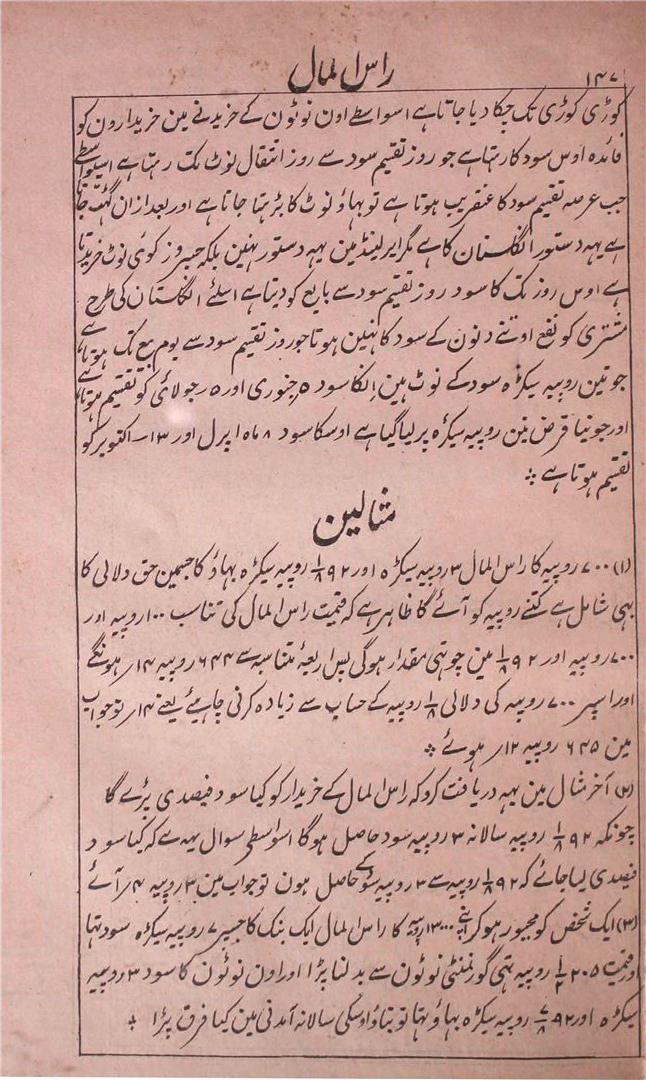 ۱۴۷
راس المال
کوڑی کوڑی تک چکا دیا جاتا ہے اسواسطے اون نوٹون کے خریدنے مین خریدارون کو
فائدہ اوس سود کا رہتا ہے جو روز تقیم سود سے روز انتقال نوٹ تک رہتا ہے اسیواسطے
جب عرصہ تقیم سود کا عنقریب ہوتا ہے تو بہاؤ نوٹ کا بڑہتا جاتا ہے اور بعد ازان گہٹ جاتا
ہے یہہ دستور انگلستان کا ہے مگر ایرلینڈ مین یہہ دستور نہین بلکہ جس روز کوئی نوٹ خریدتا
ہے اوس روز تک کا سود روز تقیم سود سے بایع کو دیتا ہے اسلئے انگلستان کی طرح
مشتری کو نفع اوتنے دنون کے سود کا نہین ہوتا جو روز تقیم سود سے یوم بیع تک ہوتا ہے
جو تین روپیہ سیکڑہ سود کے نوٹ ہین انکا سود ۵ جنوری اور ۵ رجولائی کو تقیم ہوتا ہے
اور جو نیا قرض تین روپیہ سیکڑہ پر لیا گیا ہے اوسکا سود ۸ ماہ اپرل اور ۱۳ اکتوبر کو
تقیم ہوتا ہے
مثالین
(۱) ۷۰۰ روپیہ کا راس المال ۳ روپیہ سیکڑہ اور ۹۲ ۱/۸ روپیہ سیکڑہ بہاؤ کا جسمین حق دلالی کا
بہی شامل ہے کتنے روپیہ کو آئے گا ظاہر ہے کہ قیمت راس المال کی تناسب ۱۰۰ روپیہ اور
۷۰۰ روپیہ اور ۹۲ ۱/۸ مین چوتہی مقدار ہوگی پس اربعۂ متناسبہ سے ۶۴۴ روپیہ ۱۴ر ہونگے
اور اسپر ۷۰۰ روپیہ کی دلالی ۱/۸ روپیہ کے حساب سے زیادہ کرنی چاہیئے یعنے ۱۴ر تو جواب
مین ۶۴۵ روپیہ ۱۲ر ہوئے
(۲) آخر مثال مین یہہ دریافت کرو کہ راس المال کے خریدار کو کیا سود فیصدی پڑے گا
چونکہ ۹۲ ۱/۸ روپیہ سالانہ ۳ روپیہ سود حاصل ہوگا اسواسطے سوال یہہ ہے کہ کیا سود
فیصدی لیا جائے کہ ۹۲ ۱/۸ روپیہ سے ۳ روپیہ سود کے حاصل ہون تو جواب مین ۳ روپیہ ۴ر آئے
(۳) ایک شخص کو مجبور ہوکر اپنے ۱۳۰۰۰ روپیہ کا راس المال ایک بنک کا جسپر ۷ روپیہ سیکڑہ سود تہا
اور قیمت ۲۰۵ ۱/۲ روپیہ تہی گورنمنٹی نوٹون سے بدلنا پڑا اور اون نوٹون کا سود ۳ روپیہ
سیکڑہ اور ۹۲ ۷/۸ روپیہ سیکڑہ بہاؤ تہا تو بتاؤ اوسکی سالانہ آمدنی مین کیا فرق پڑا